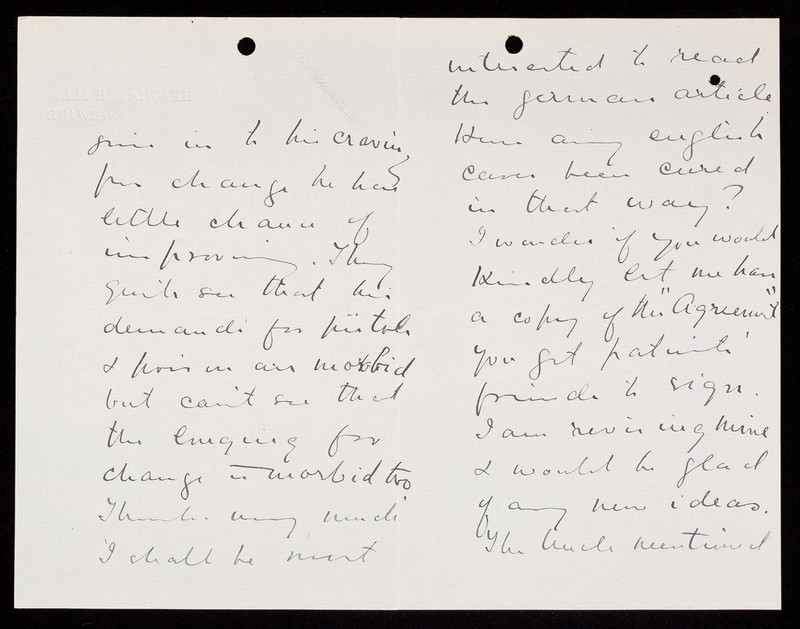 give in to his craving
for change he has
little chance of
improving. They
quite see that his
demands for pistols
& poison are morbid
but can't see that
the longing for
change is morbid too
Thanks very much
I shall be most
interested to read
the german article
Have any english
cases been cured
in that way?
I wonder if you would
Kindly let me have
a copy of the "Agreement"
you get patients'
friends to sign.
I am revising mine
& would be glad
of any new ideas.
The Uncle mentioned